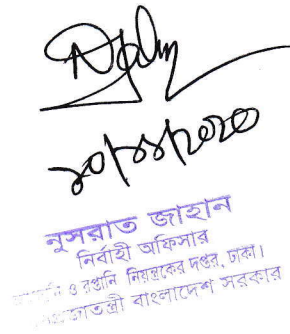 ২০/১১/২০২০
নুসরাত জাহান
নির্বাহী অফিসার
ও রপ্তানি নিয়ন্ত্রকের দপ্তর, ঢাকা।
গণপ্রজাতন্ত্রী বাংলাদেশ সরকার